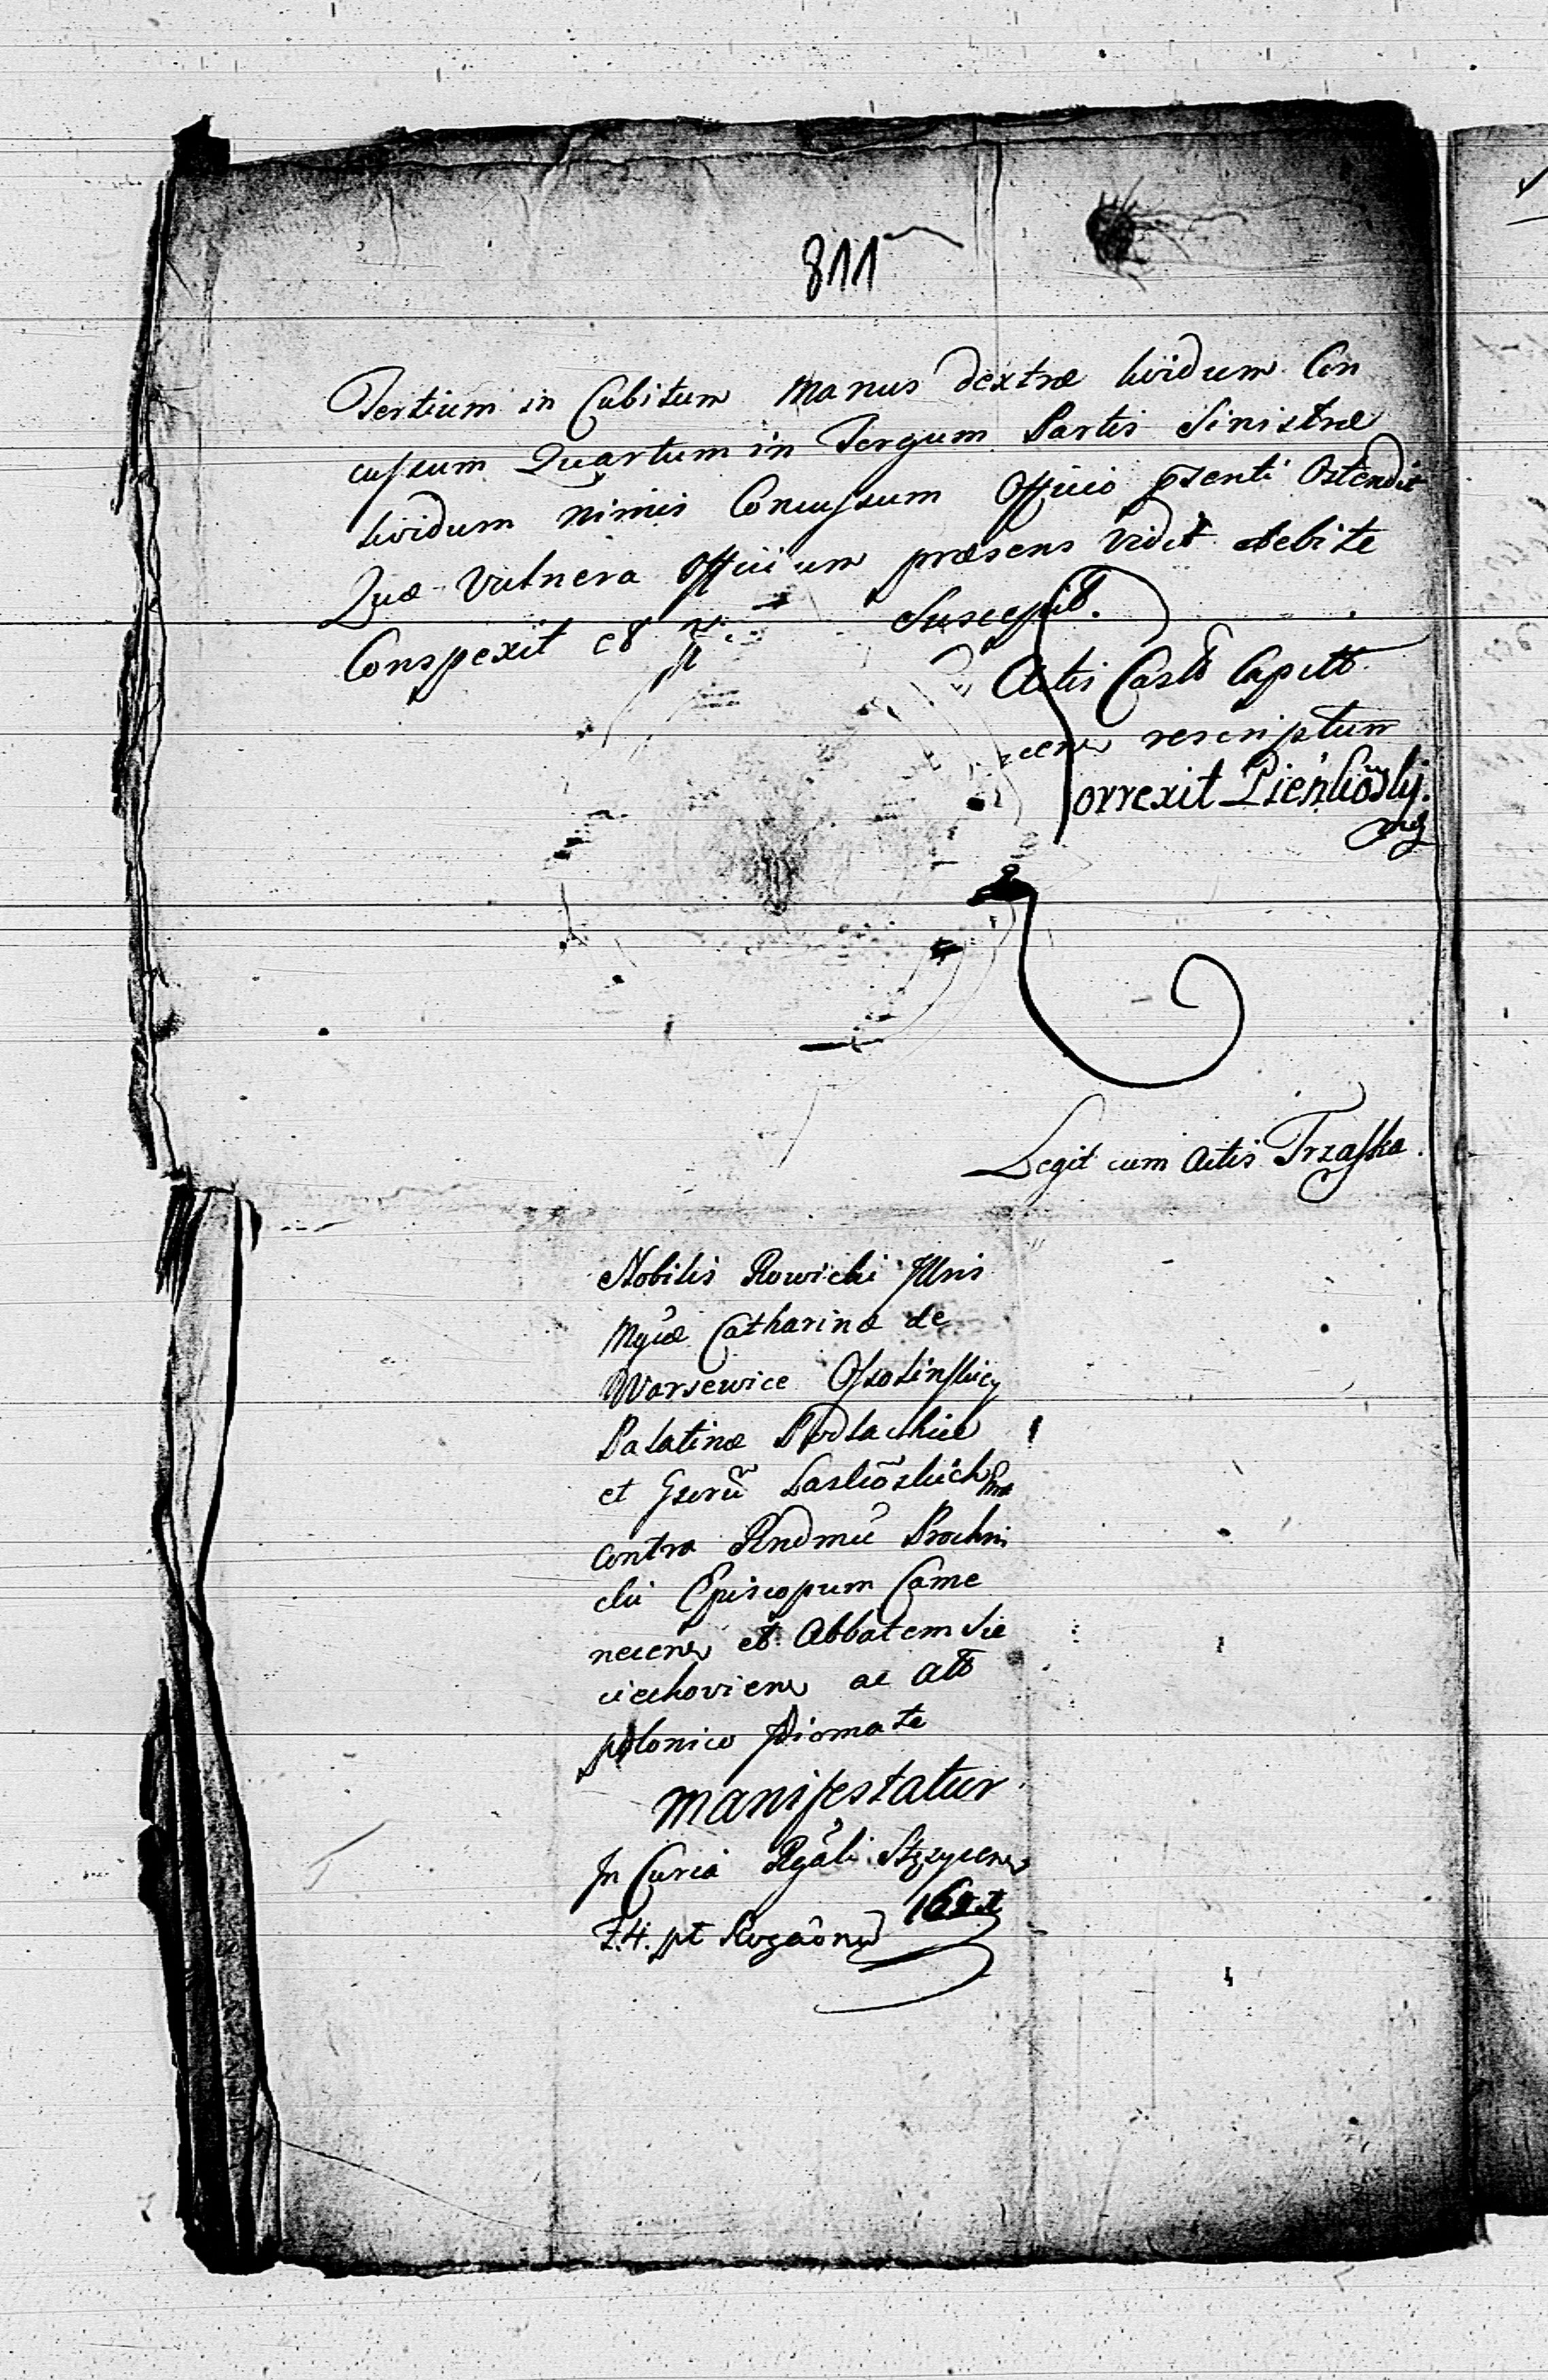 811
Tertium in Cubitum manus dextræ lividum Con
cussum Quartum in Tergum Partis Sinistræ
lividum nimis Concussum Officio pszenti Ostendit
Quæ Vulnera Officium præsens Vidit debite
Conspexit et
Suscepit.
Actis Castr Capitt
rescriptum
Correxit Pieńkowskj.
mp
Legit cum Actis Trzaska.
Nobilis Rowicki Illris
Mgcæ Catharinæ de
Warsewice Ossolinskiey
Palatinæ Podlachiæ
et Gsorū Laskowskich
contra Rndmū Prochni
cki Episcopum Came
necens et Abbatem Sie
ciechoviens ac alt
polonico Idiomate
manifestatur
In Curia Rgāli Stęzycens
F. 4. pt Rogaōnū